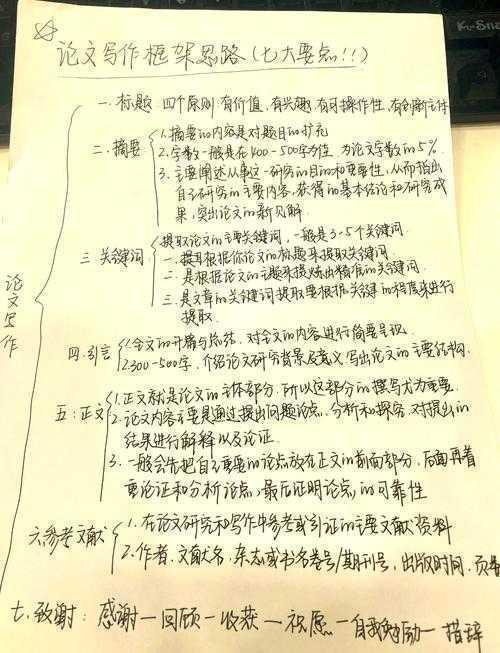 论文写作框架思路(七大要点!!!)
论文写作
一.标题 四个原则:有价值,有兴趣,有可操作性,有创新立体
二.摘要
1.摘要的内容是对题目的扩充
2.字数一般是在400-500字为佳,为论文字数的5%.
3.主要阐述从事这一研究的目的和重要性,从而指出
自己研究的主要内容,获得的基本结论和研究成
果,突出论文的新见解.
三 关键词
提取论文的主要关键词,一般是3-5个关键词.
一.提取根据你论文的标题来提取关键词.
二.是根据论文的主题来提炼出精准的关键词.
三.是文章的关键词提取要根据关键的程度来进行
提取.
四.引言
1.全文的开篇与总结,对全文的内容进行简要呈现.
2.300-500字,介绍论文研究背景及意义,写出论文的主要结构.
五:正文
1.正文就是论文的主体部分,所以这部分的撰写尤为重要.
2.论文内容主要是通过提出问题论点,分析和探究,对提出的
结果进行解释以及论证.
3.一般会先把自己主要的论点放在正文的前面部分,后面再着
重论证和分析论点,最后证明论点的可靠性
六.参考文献
1.在论文研究和写作中参考或引证的主要文献资料
2.作者,文献名,杂志或书名卷号/期刊号,出版时间,页
七.致谢:感谢一回顾一收获一祝愿一自我勉励一措辞